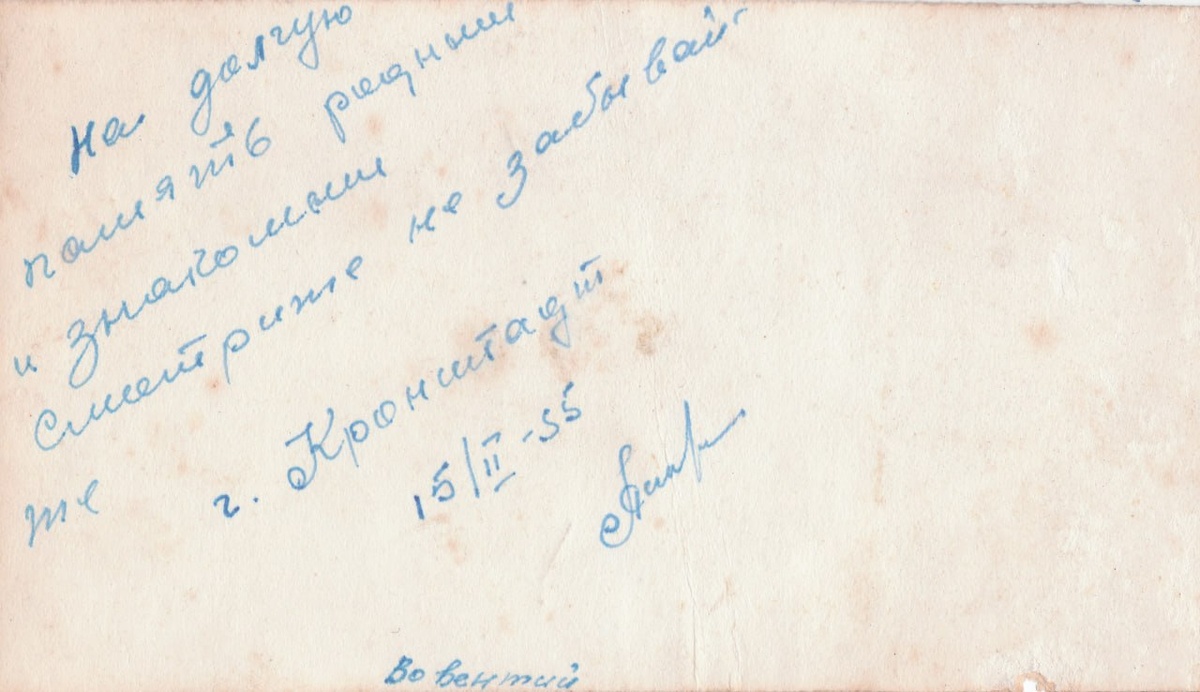 На долгую
память родным
и знакомым
Смотриже не забывай
же
г. Кронштадт
15/II-55